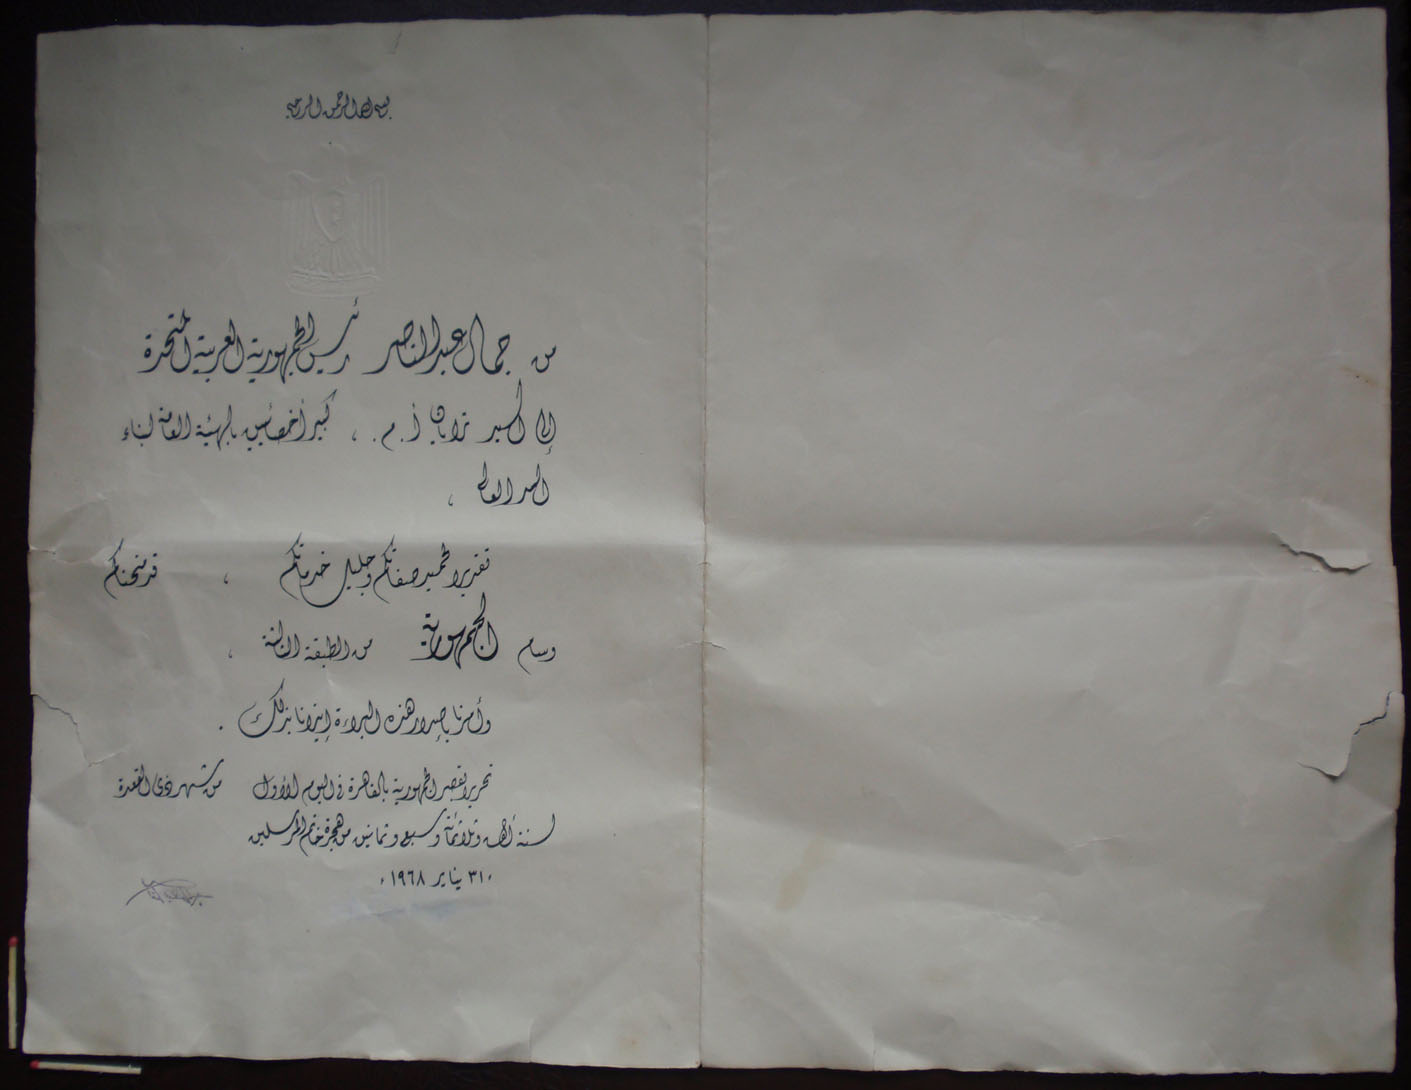 بسم الله الرحمن الرحيم
من جمال عبد الناصر رئيس الجمهورية العربية المتحدة
إلى السيد تزايان أ. م. ، كبير أخصائيين بالهيئة العامة لبناء
السد العالى ،
تقديرا لحميد صفاتكم وجليل خدماتكم ، قد منحناكم
وسام الجمهورية من الطبقة الثالثة ،
وأمرنا بإصدار هذه البراءة إيذانا بذلك .
تحريرا بقصر الجمهورية بالقاهرة فى اليوم الأول من شهر ذى القعدة
لسنة ألف وثلاثمائة وسبع وثمانين من هجرة خاتم المرسلين
٣١ يناير ١٩٦٨